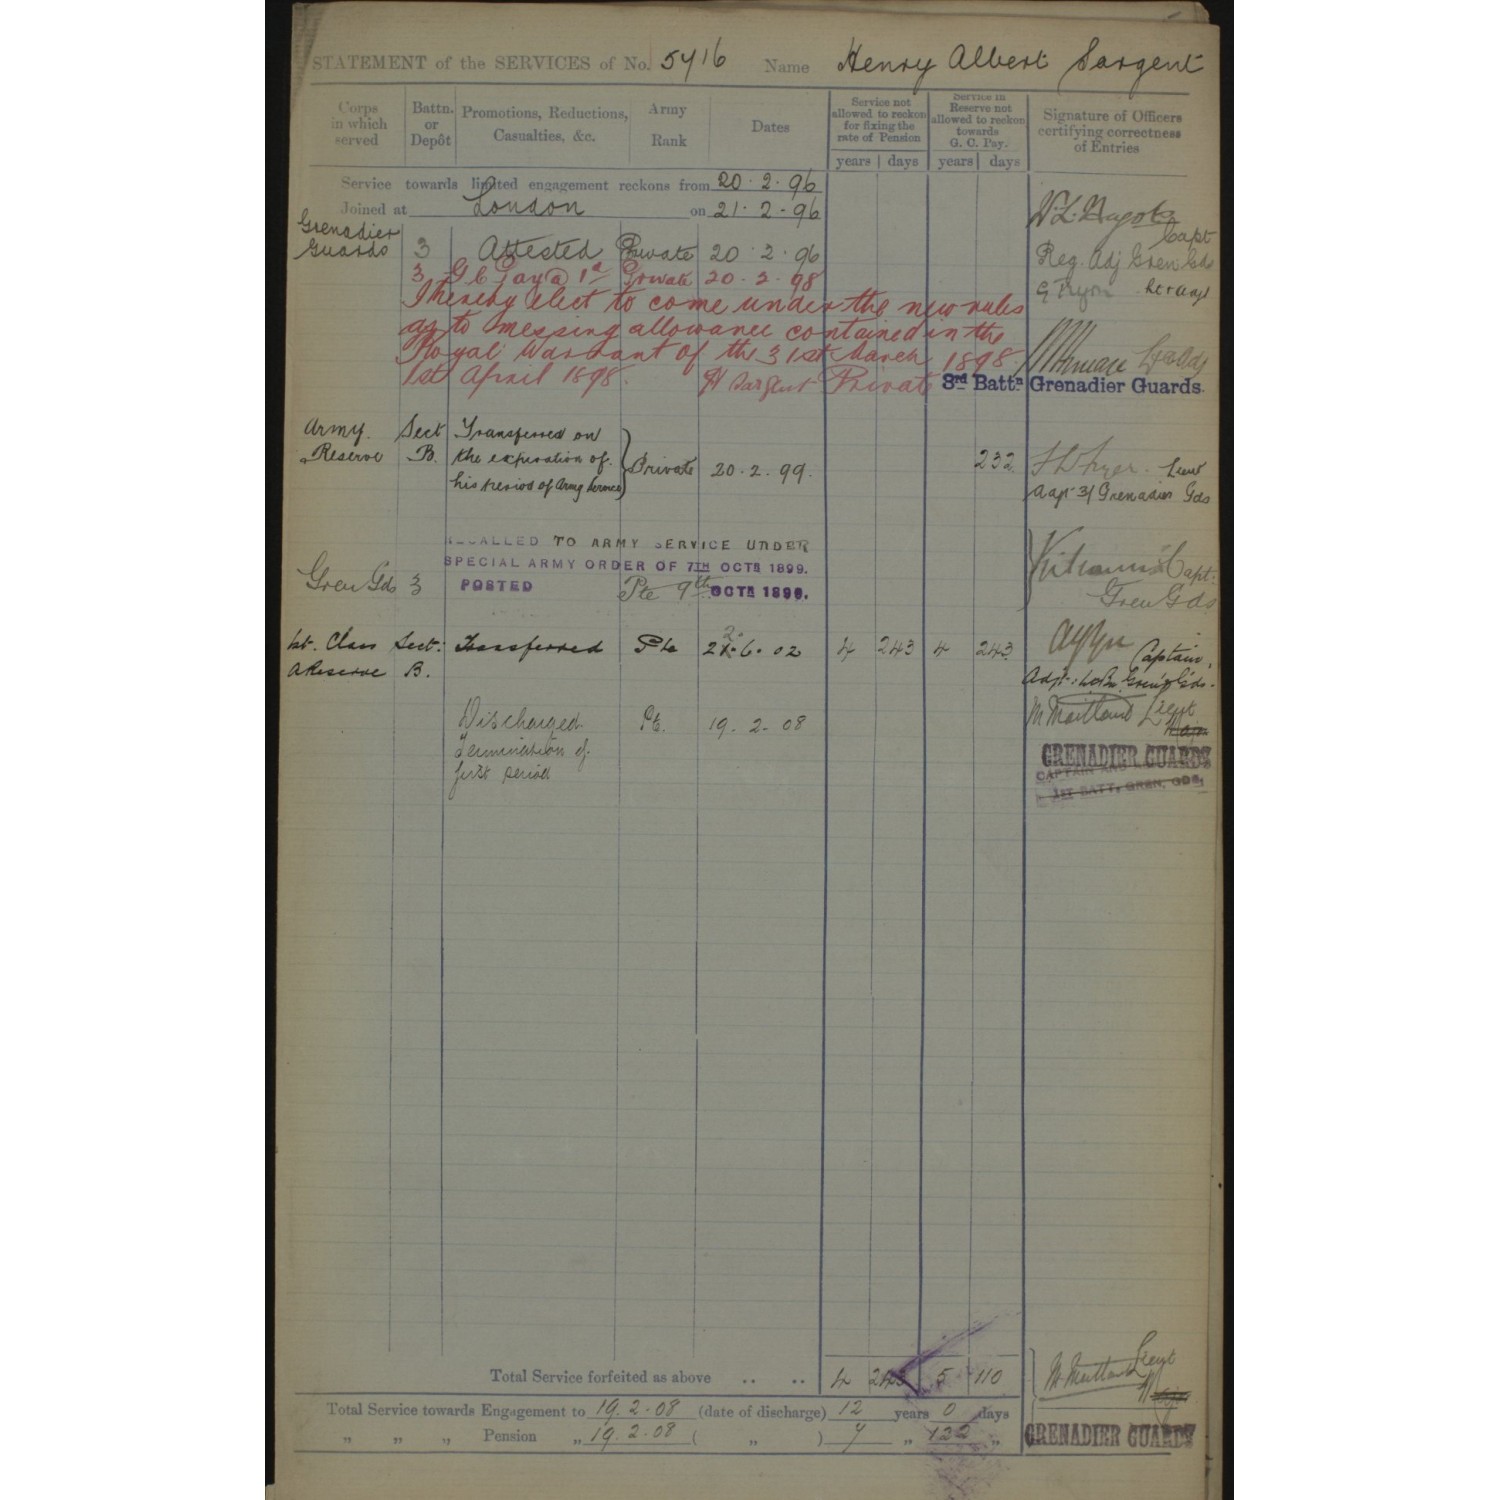 STATEMENT of the SERVICES of No. 5416 Name Henry Albert Sargent
Corps in which served
Battn. or Depôt
Promotions, Reductions, Casualties, &c.
Army Rank
Dates
Service not allowed to reckon for fixing the rate of Pension
years days
Service in Reserve not allowed to reckon towards G. C. Pay.
years days
Signature of Officers certifying correctness of Entries
Service towards limited engagement reckons from 20 . 2 . 96
Joined at London on 21 . 2 . 96
Capt
Grenadier Guards 3 Attested Private 20 . 2 . 96 Reg. Adj Gren Gds
3 G C Pay @ 1d Private 20 . 2 . 98
I hereby elect to come under the new rules
as to messing allowance contained in the
Royal Warrant of the 31st March 1898
1st April 1898. H Sargent Private 3rd Battn. Grenadier Guards.
Army Reserve Sect B. Transferred on
the expiration of
his period of Army Service } Private 20 . 2 . 99. 232
3/ Grenadier Gds
RECALLED TO ARMY SERVICE UNDER
SPECIAL ARMY ORDER OF 7TH OCTR 1899.
Gren Gds 3 POSTED Pte 9th OCTR 1899. Capt.
Gren Gds
1st Class Sect: Transferred Pte 2 . 6 . 02 4 243 4 243 Captain,
A Reserve B. Gren Gds.
Discharged Pte. 19 . 2 . 08 M Maitland Lieut
Termination of
first period
GRENADIER GUARDS
CAPTAIN AND
1ST BATT. GREN. GDS.
Total Service forfeited as above .. .. 4 243 5 110 M Maitland Lieut
Total Service towards Engagement to 19 . 2 . 08 (date of discharge) 12 years 0 days
„ „ „ Pension „ 19 . 2 . 08 ( „ ) 7 „ 122 „ GRENADIER GUARDS